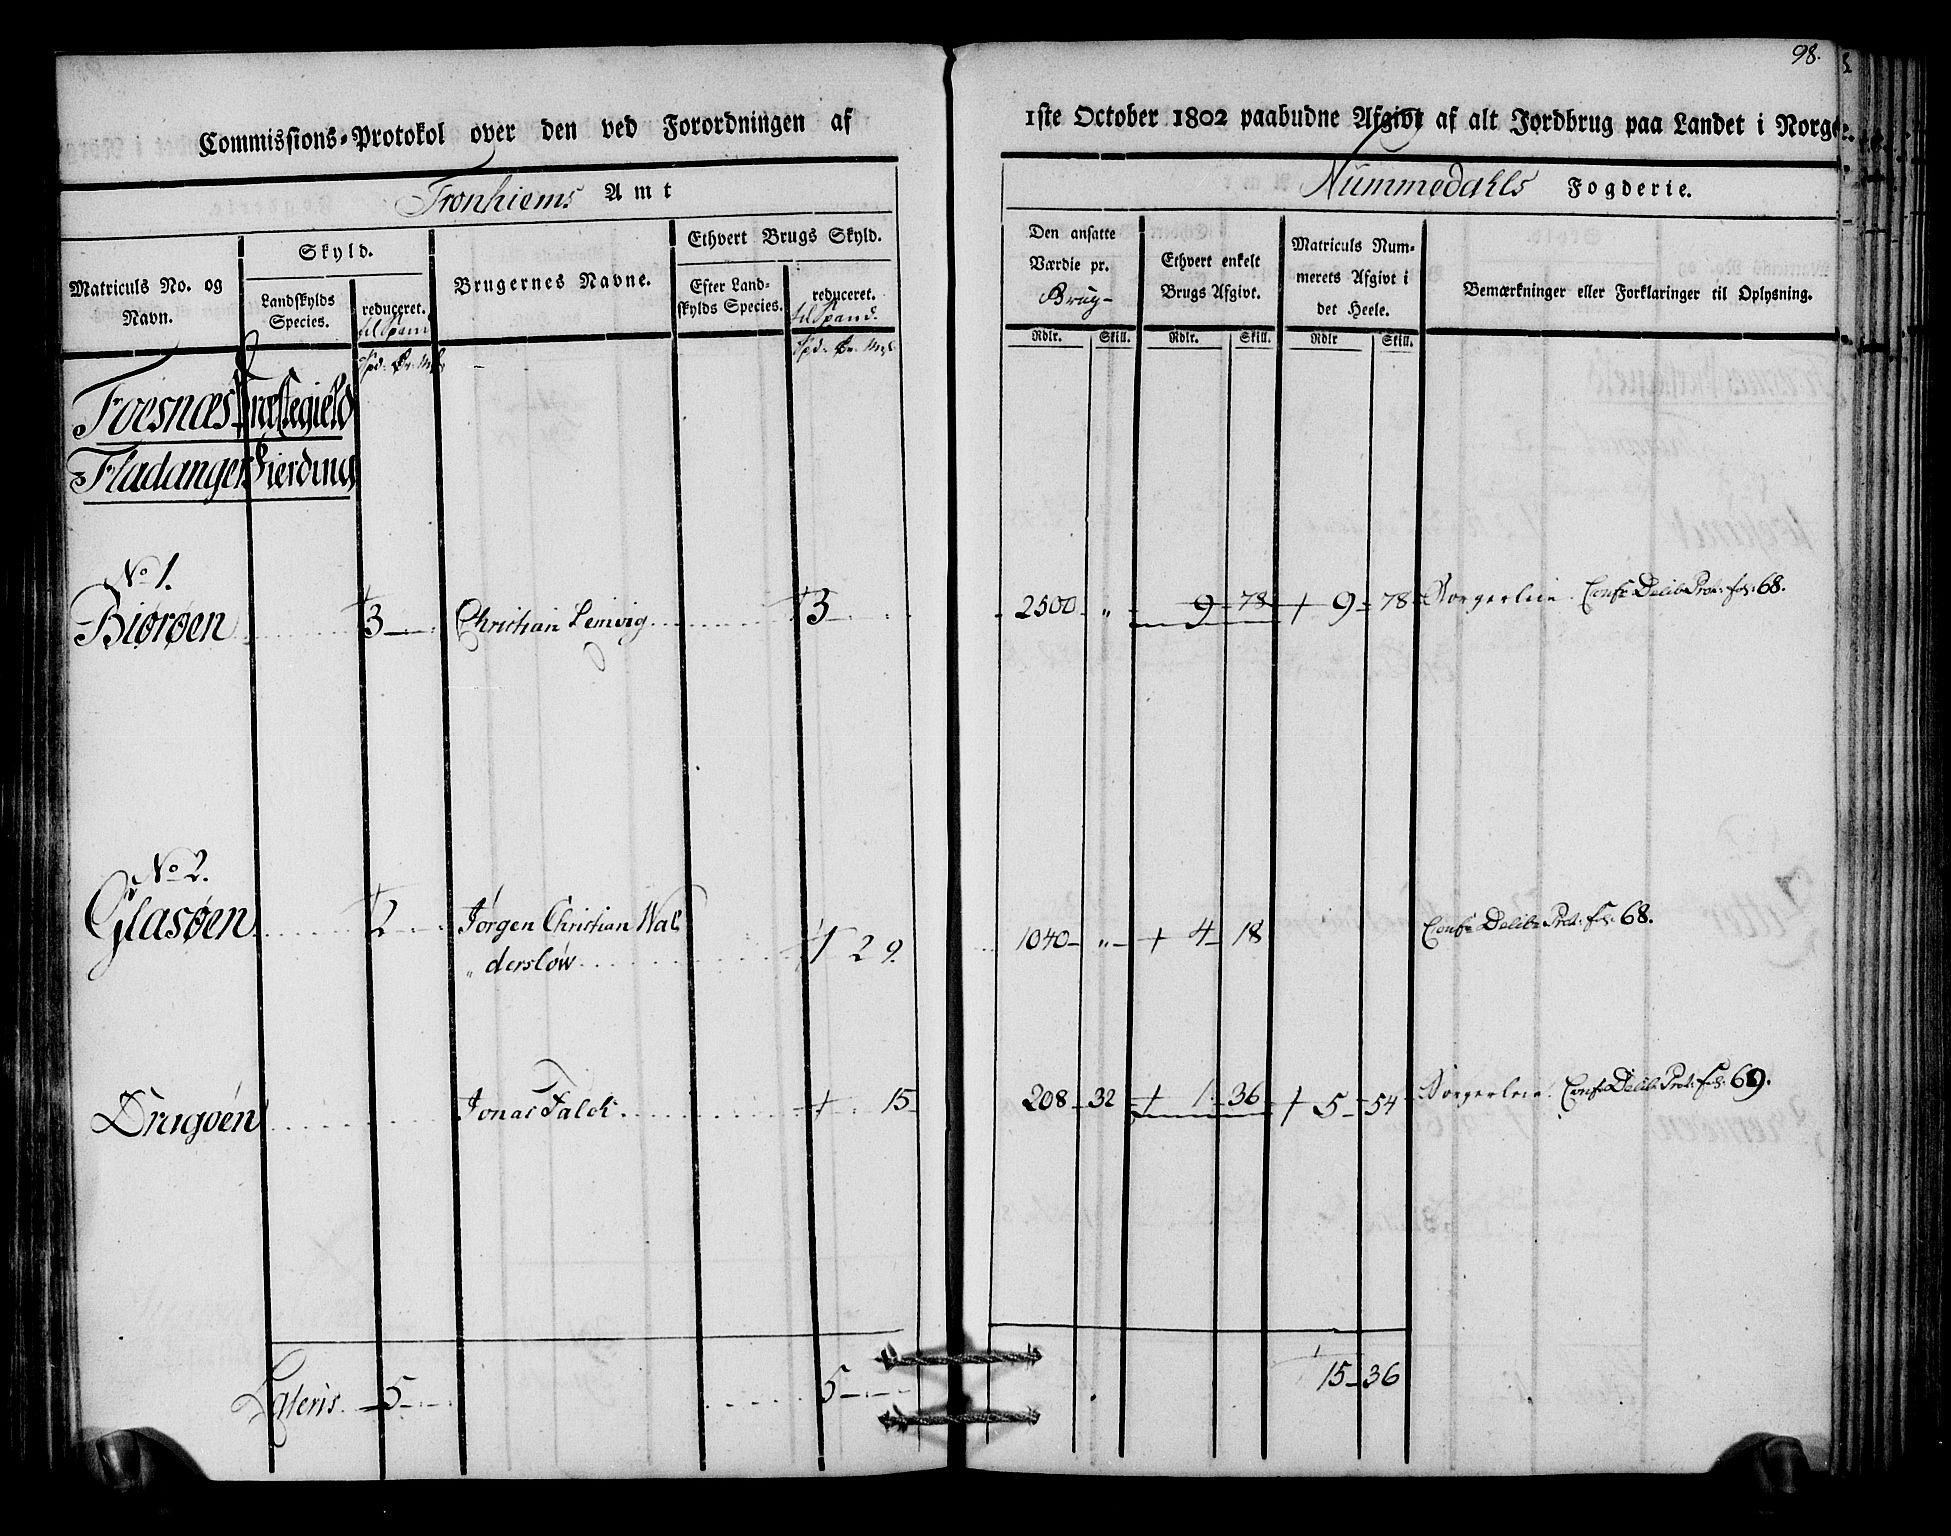 98.
Commissions-Protokol over den ved Forordningen af 1ste October 1802 paabudne Afgivt af alt Jordbrug paa Landet i Norge.
Tronhiems Amt
Nummedahls Fogderie.
Matriculs No. og Navn.
Skyld.
Landskylds Species.
reduceret.
til Spand
Spd. Ør. Mkl
Brugernes Navne.
Ethvert Brugs Skyld.
Efter Landskylds Species.
reduceret.
til Spand.
Spd. Ør. Mkl
Den ansatte Værdie pr. Brug
Rdlr. Skill.
Ethvert enkelt Brugs Afgivt.
Rdlr. Skill.
Matriculs Nummerets Afgivt i det Heele.
Rdlr Skill.
Bemærkninger eller Forklaringer til Oplysning.
Foesnæs Præstegield
Fladanger Fierding
No 1.
Biørøen 3 Christian Lemvig 3 2500 " 9 78 9 78 Borgerleie. Conf: Delib: Prot: fol: 68.
No 2.
Glasøen 2 Jørgen Christian Wal
dersløw 1 2 9. 1040 " 4 18 Conf: Delib: Prot: fol: 68.
Dragøen Jonas Falck 15 208 32 1 36 5 54 Borgerleie. Conf: Delib: Prot: fol: 69.
Lateris 5 5 15 36